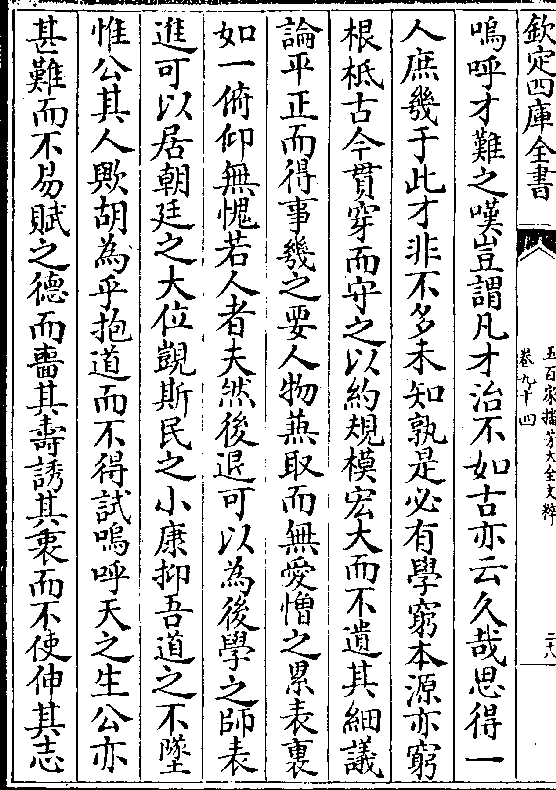 欽定四庫全書
五百家播芳大全文粹
卷九十四
二十八
嗚呼才難之嘆豈謂凡才治不如古亦云久哉思得一
人庶幾于此才非不多未知孰是必有學窮本源亦窮
根柢古今貫穿而守之以約規模宏大而不遺其細議
論平正而得事幾之要人物兼取而無愛憎之累表裏
如一俯仰無愧若人者夫然後退可以為後學之師表
進可以居朝廷之大位覬斯民之小康抑吾道之不墜
惟公其人歟胡為乎抱道而不得試嗚呼天之生公亦
甚難而不易賦之德而嗇其壽誘其衷而不使伸其志